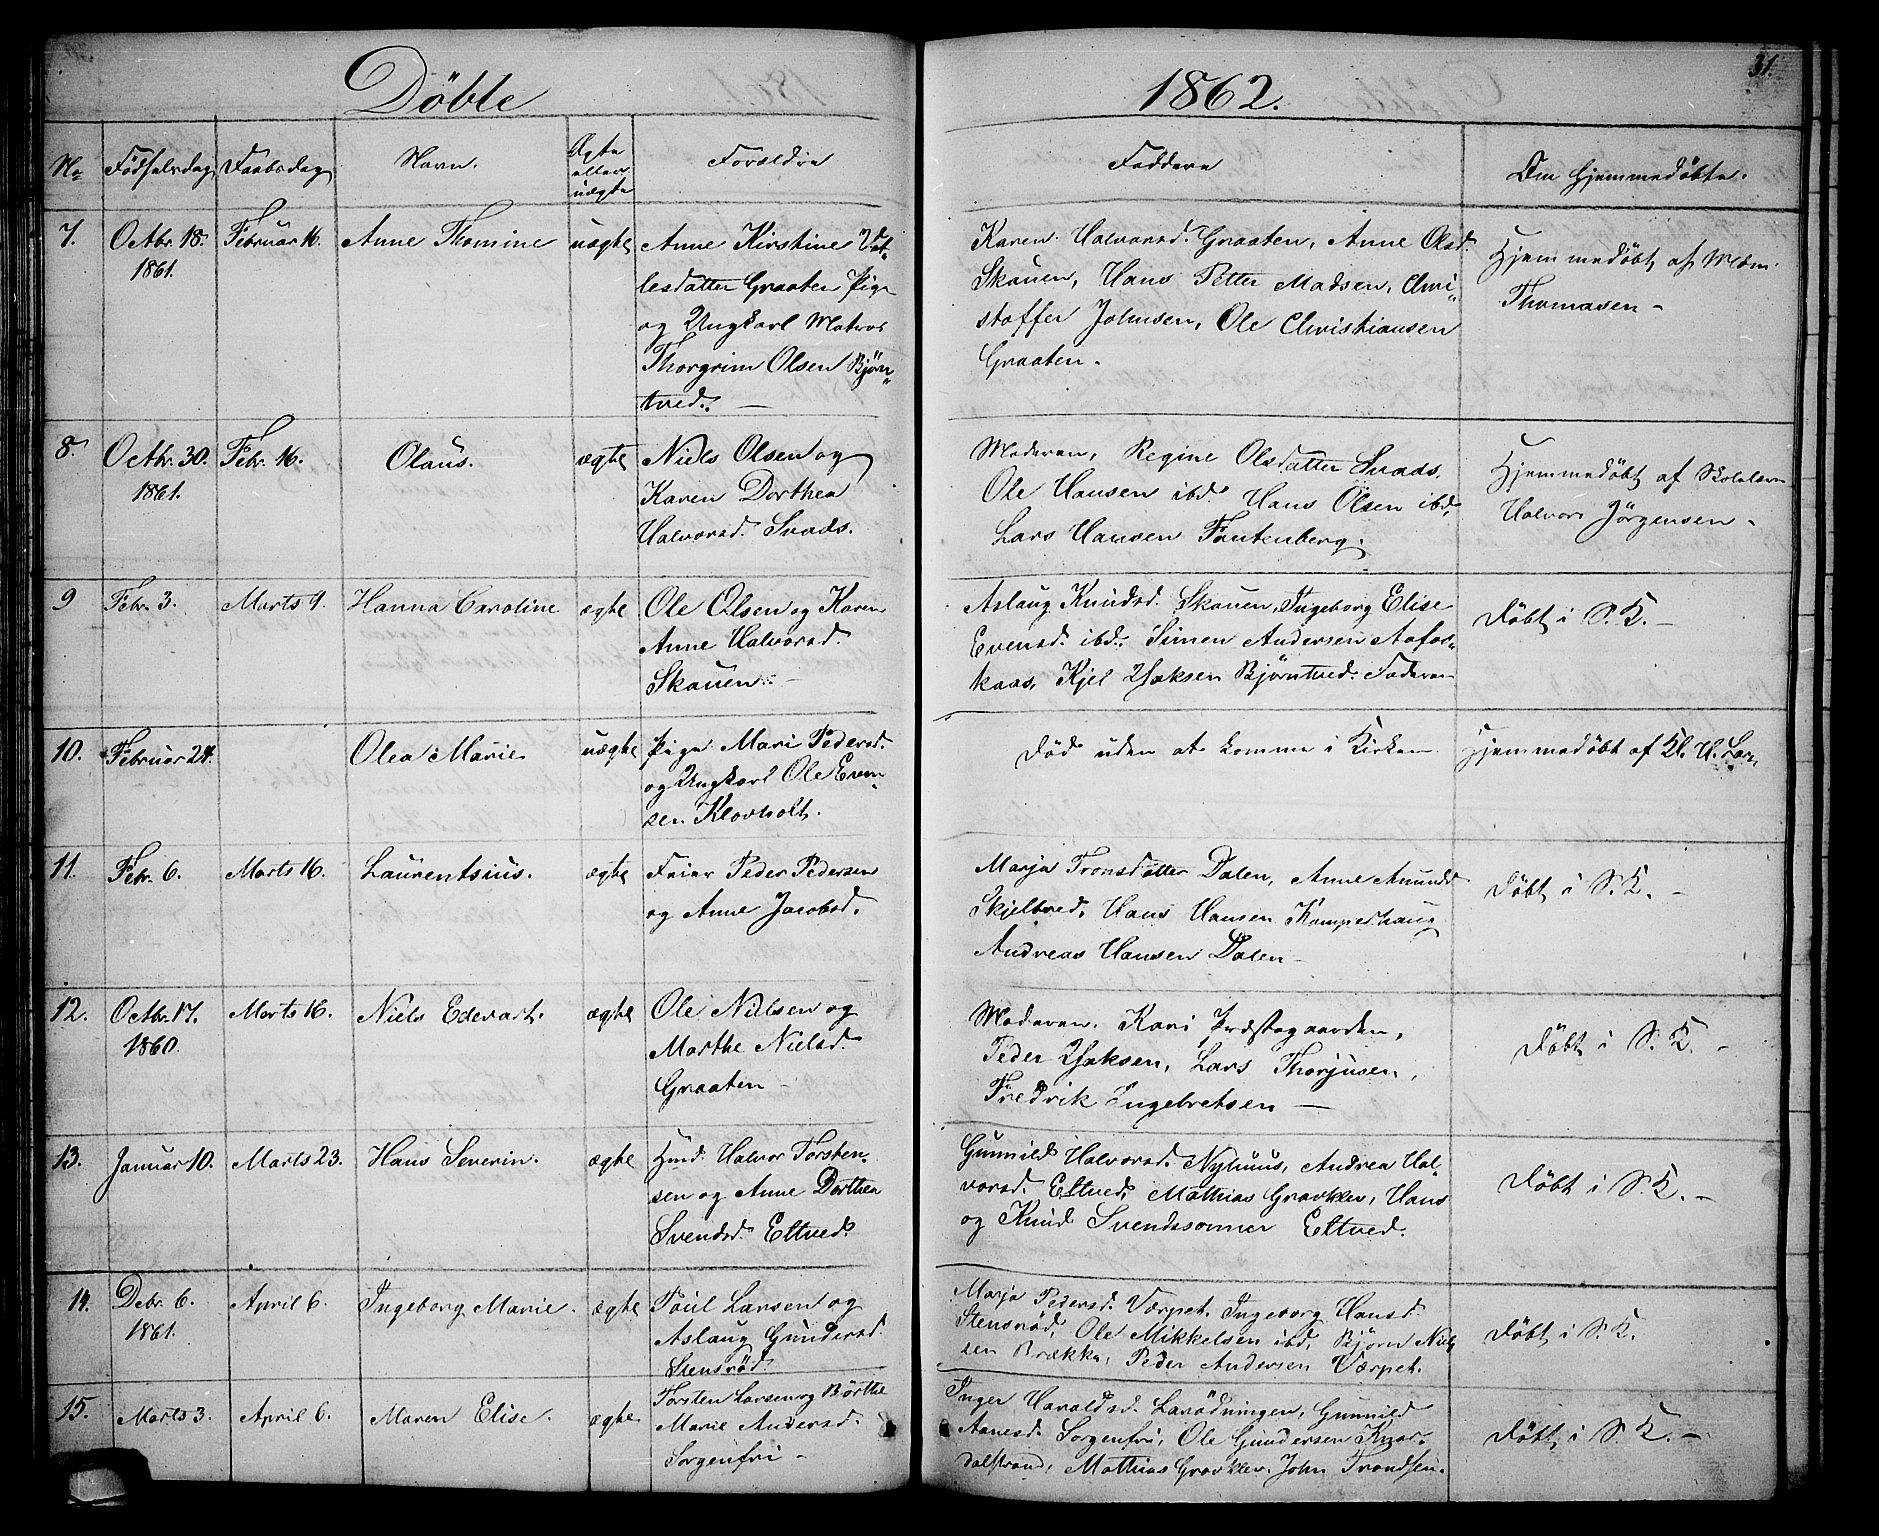 Döbte
1862.
31.
No
Födselsdag
Daabsdag
Navn.
Ægte
eller
uægte
Forældre
Faddere
Om Hjemmedöbte.
7.
Octbr. 18.
1861.
Februar 16.
Anne Thomine
uægte
Anne Kirstine Det-
lesdatter Graaten Pige
og Ungkarl Matros
Thorgrim Olsen Bjørn-
tved. —
Karen Halvorsd. Graaten, Anne Olsd.
Skauen, Hans Petter Madsen, Chri-
stoffer Johnsen, Ole Christiansen
Graaten.
Hjemmedöbt af Mdm.
Thomasen —
8.
Octbr. 30.
1861.
Febr. 16.
Olaus.
ægte
Niels Olsen og
Karen Dorthea
Halvorsd. Svads.
Moderen, Regine Olsdatter Svads,
Ole Hansen ibd. Hans Olsen ibd,
Lars Hansen Fantenberg.
Hjemmedöbt af Skolelærer
Halvor Jörgensen.
9
Febr. 3.
Marts 9.
Hanna Caroline
ægte
Ole Olsen og Karen
Anne Halvorsd.
Skauen. —
Aslaug Knudsd. Skauen, Ingeborg Elise
Evensd. ibd. Simen Andersen Aafos-
kaas, Kjel Isaksen Bjørntved. Faderen
Döbt i S. K. —
10.
Februar 24.
Olea Marie
uægte
Pige Mari Pedersd.
og Ungkarl Ole Even-
sen Klovholt.
Död uden at komme i Kirken
Hjemmedöbt af Kl. H. Lar,
11.
Febr. 6.
Marts 16.
Laurentsius.
ægte
Feier Peder Pedersen
og Anne Jacobsd.
Marja Tronsdatter Dalen, Anne Amunds
Skjelbred, Hans Hansen Kamperhaug
Andreas Hansen Dalen —
Döbt i S. K. —
12.
Octbr. 17.
1860.
Marts 16.
Niels Edevart.
ægte
Ole Nielsen og
Marthe Nielsd.
Graaten —
Moderen, Kari Præstegaarden,
Peder Isaksen, Lars Thorjusen,
Fredrik Engebretsen —
Döbt i S. K. —
13.
Januar 10.
Marts 23.
Hans Severin.
ægte
Hmd. Halvor Torsten-
sen og Anne Dorthea
Svendsd. Eltved.
Gunnild Halvorsd. Nyhuus, Andrea Hal-
vorsd. Eltved, Mathias Gravklev, Hans
og Knud Svendssønner Eltved.
Döbt i S. K. —
14.
Debr. 6.
1861.
April 6.
Ingeborg Marie.
ægte
Poul Larsen og
Aslaug Gundersd.
Stensröd
Marja Pedersd. Værpet. Ingeborg Hansd.
Stensröd, Ole Mikkelsen ibd, Björn Niel-
sen Brække, Peder Andersen Værpet.
Döbt i S. K.
15.
Marts 3.
April 6.
Maren Elise.
ægte
Torsten Larsen og Börthe
Marie Andersd.
Sorgenfri —
Inger Haraldsd. Larödningen, Gunnild
Aanesd. Sorgenfri, Ole Gundersen Knar-
dalstrand, Mathias Gravklev. John Trondsen.
Döbt i S. K. —